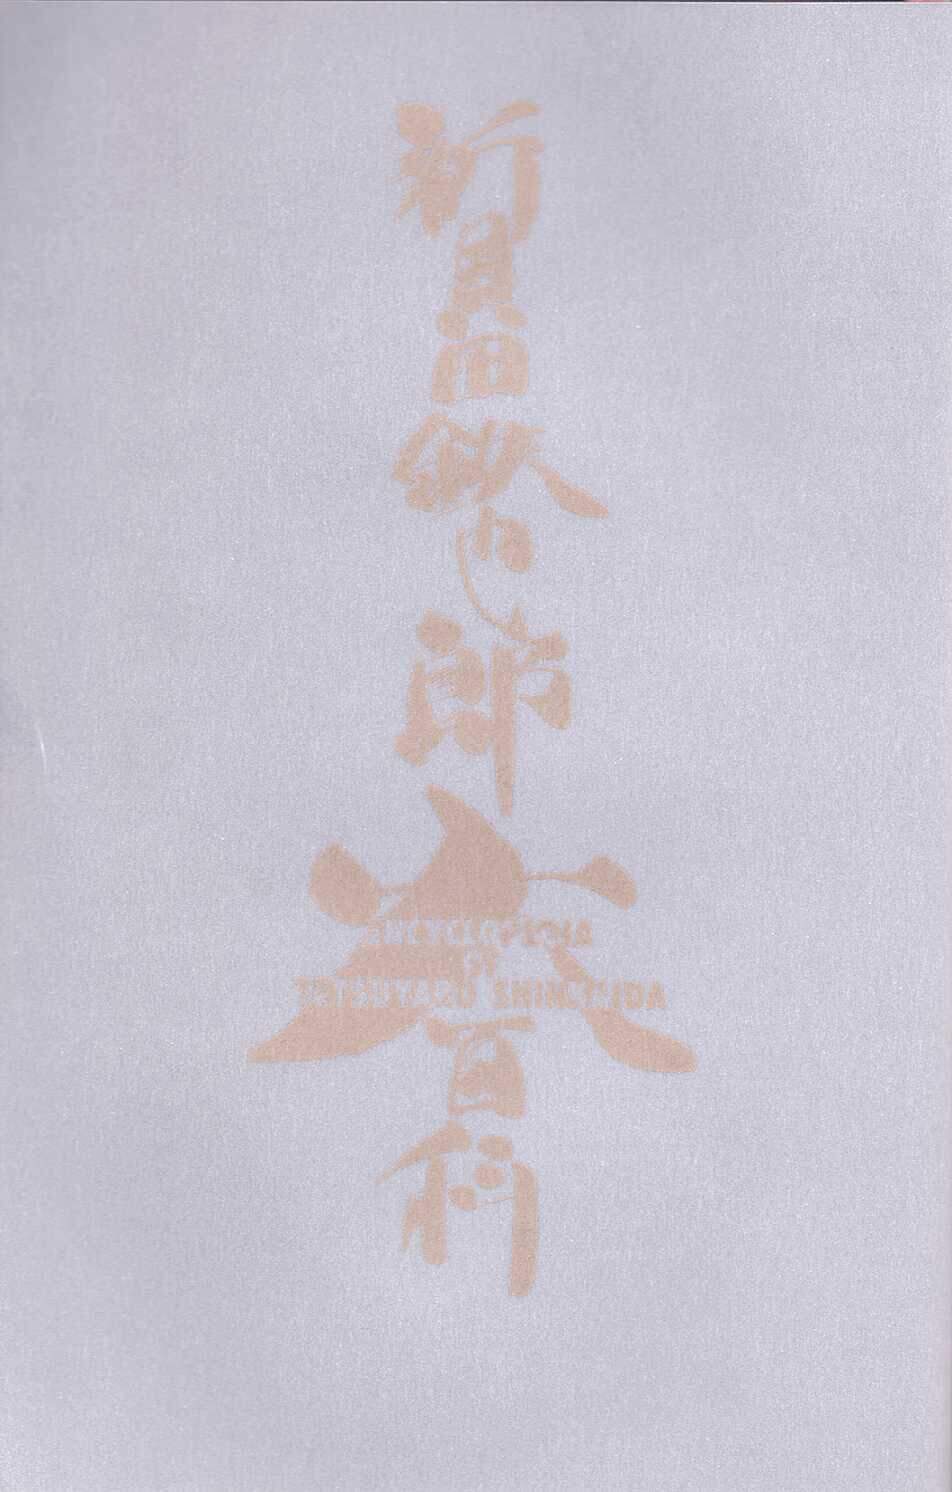 新貝田鉄也郎大百科
ENCYCLOPEDIA
OF
TETSUYAROU SHINKAIDA